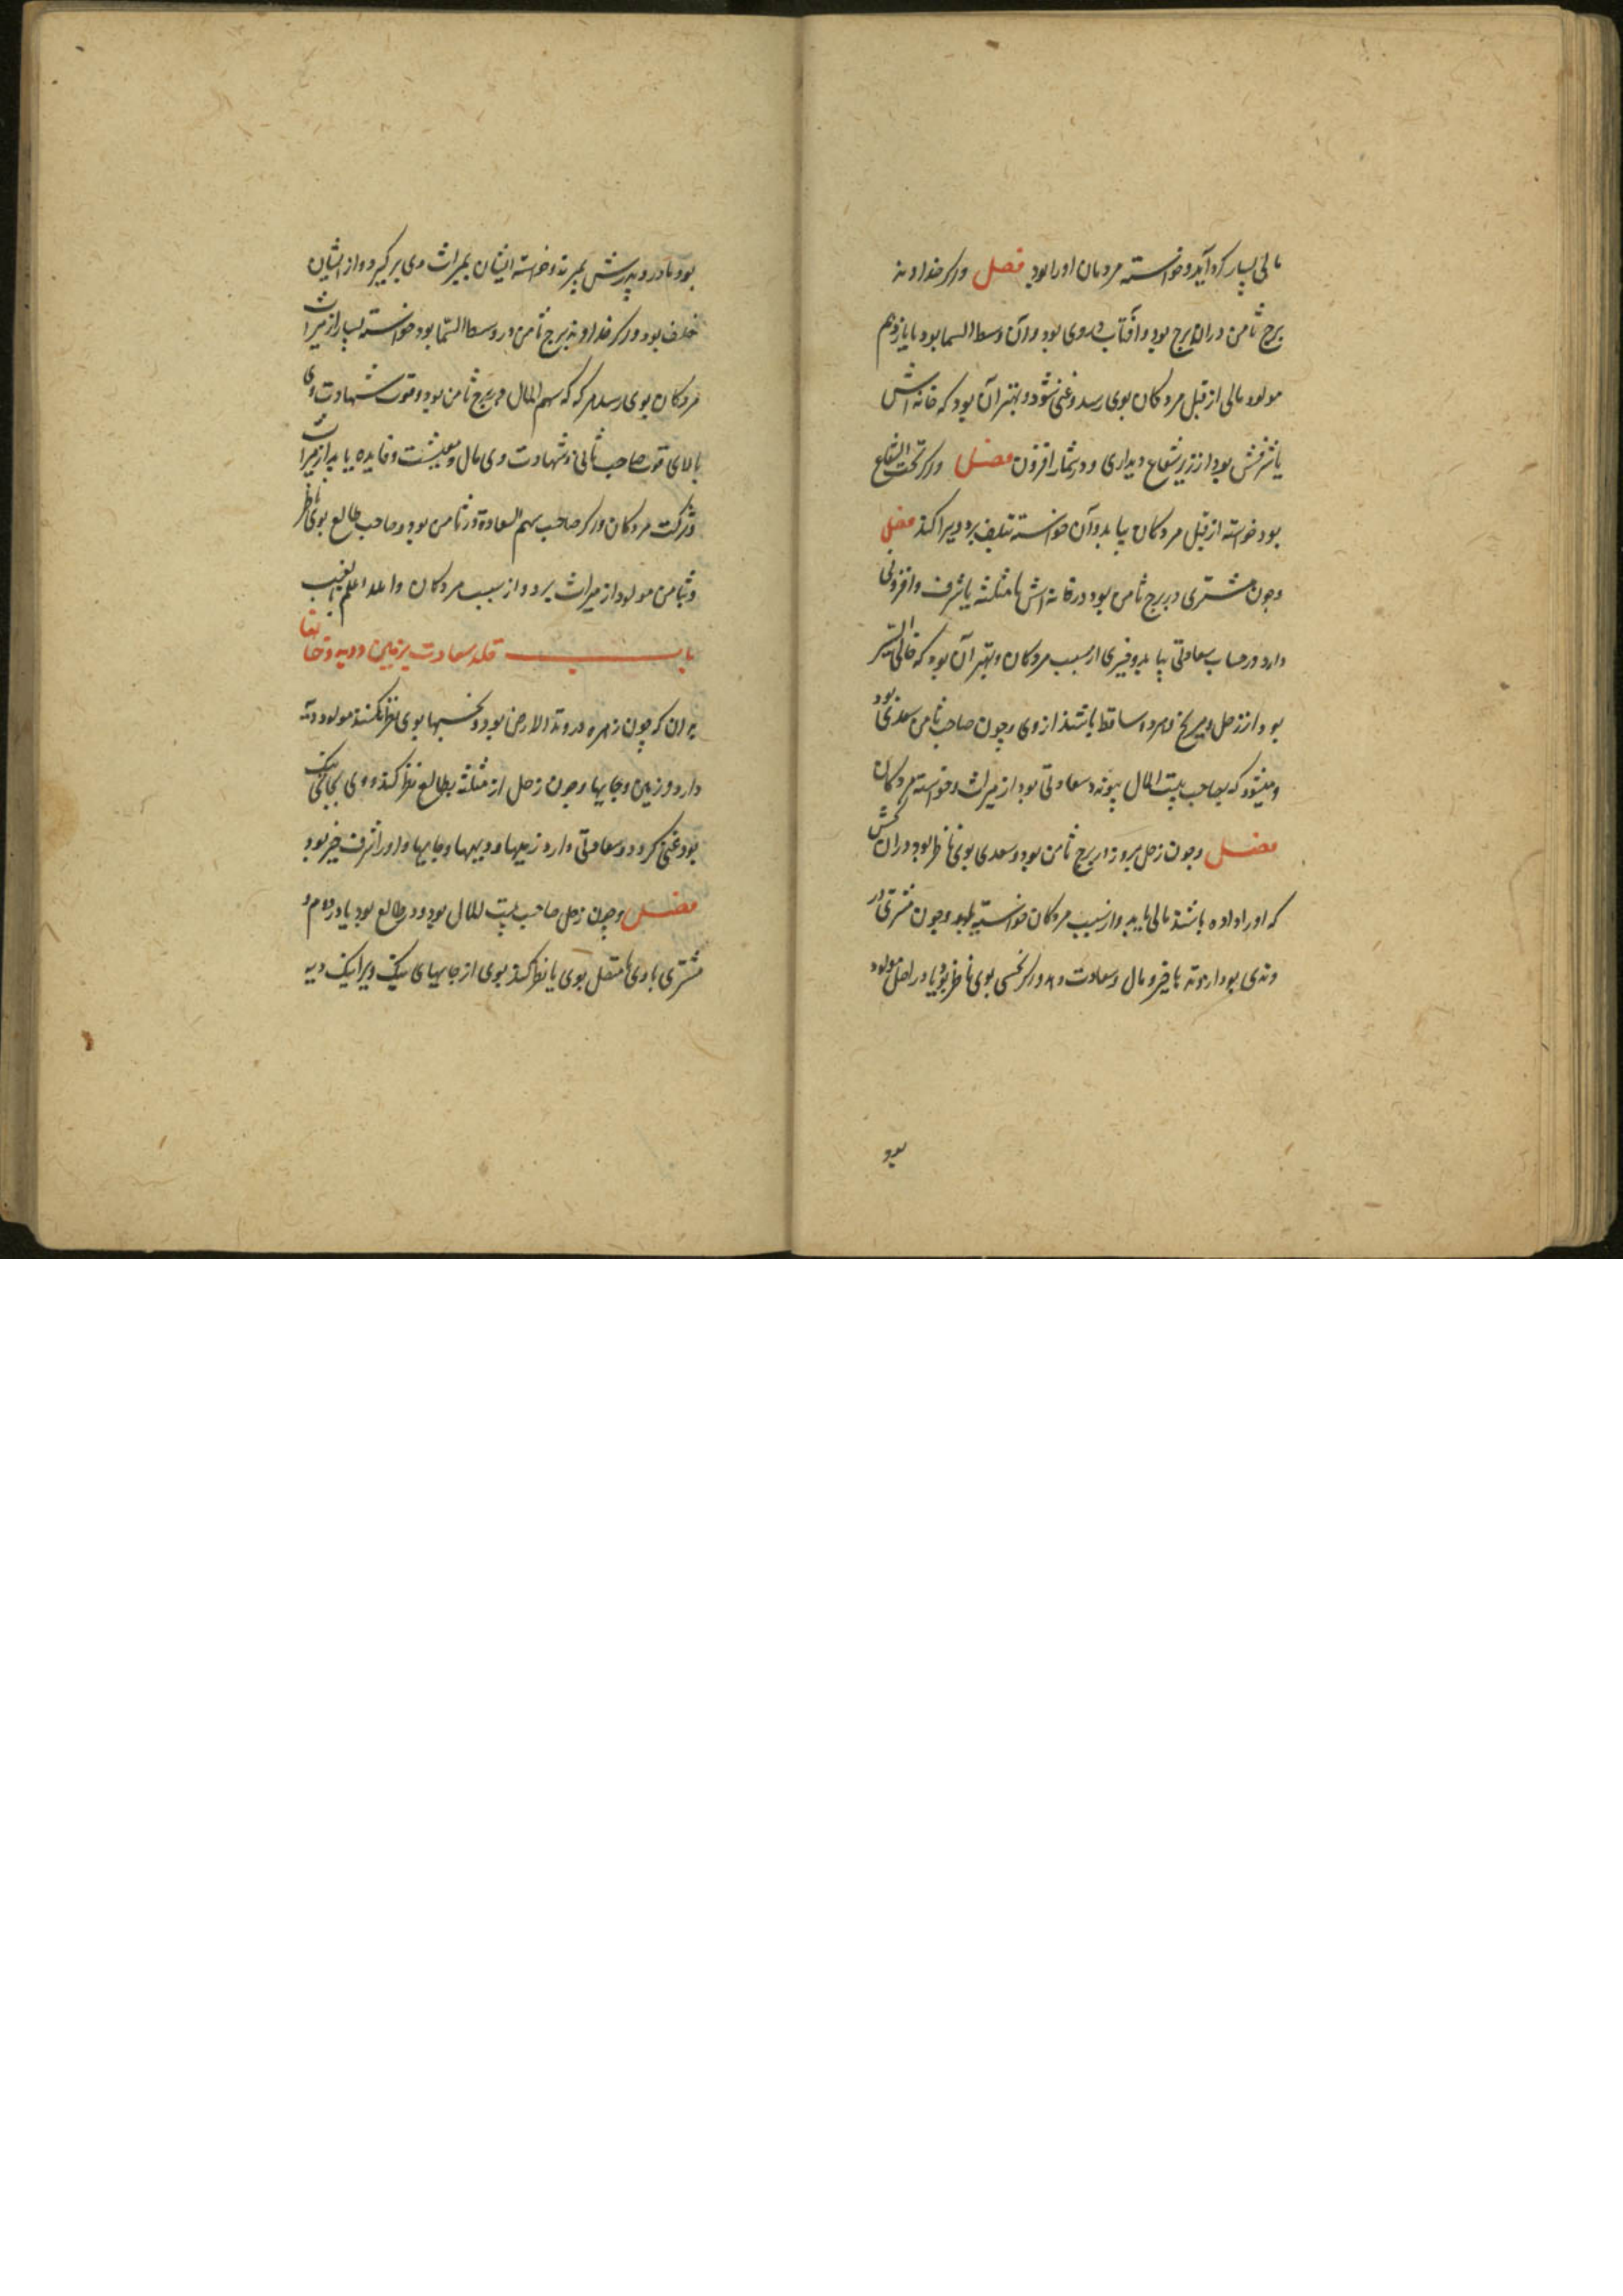 مالی بسیار کرد آید و خواسته مردمان او را بود فصل و اگر خداوند
برج ثامن در آن برج بود و آفتاب در وی بود و آن وسط السما بود یا یازدهم
مولود مالی از قبل مردکان بوی رسد و غنی شود و بهتر آن بود که خانه اش
یا شرفش بود از زیر شعاع دیداری و در شمار افزون فصل و اگر تحت الشعاع
بود خواسته از قبل مردکان بیابد و آن خواسته تلف برد و برا کند فصل
و چون مشتری در برج ثامن بود در خانه اش یا مثلثه یا شرف و افزونی
دارد در حساب سعادتی بیابد و خیری از سبب مردکان و بهتر آن بود که خالی السیر
بود از زحل و مریخ و هر دو ساقط باشند از وی و چون صاحب ثامن سعدی بود
و که بصاحب بیت المال پیوندد سعادتی بود از میراث و خواسته مردکان
فصل و چون زحل بروز در برج ثامن بود و سعدی بوی ناظر بود در آن بخش
که او را داده باشند مالی یابد و از سبب مردکان خواسته یابد و چون مشتری در
وتدی بود یا خیر و مال و سعادت و اگر نحسی بوی ناظر بود یا در اصل مولود
بود
بود مادر و پدرش بمیرند و خواسته ایشان بمیراث وی برگیرد و از ایشان
خلف بود و اگر خداوند برج ثامن در وسط السما بود خواسته بسیار از میراث
مردکان بوی رسد هرکه که سهم المال در برج ثامن بود و قوت شهادت وی
بالای قوت صاحب ثانی و شهادت وی مال و معیشت و فایده یابد از میراث
و ترکت مردکان و اگر صاحب سهم السعادة در ثامن بود و صاحب طالع بوی ناظر
و ثامن مولود از میراث برد و از سبب مردکان والله اعلم بالغیب
باب سعادت بزمین و دیه و
بدان که چون زهره در وتد الارض بود و نحسها بوی نظر نکنند مولود دیه
دارد و زمین و جایها و چون زحل از مثلثه بطالع نظر کند و وی بجای نیک
بود غنی گردد و سعادتی دارد زمینها و دیهها و جایها و او را شرف و خیر بود
فصل و چون زحل صاحب بیت المال بود و در طالع بود یا در دهم و
مشتری با وی متصل بوی یا نظر کند بوی از جایهای نیک ویرا نیک دیه